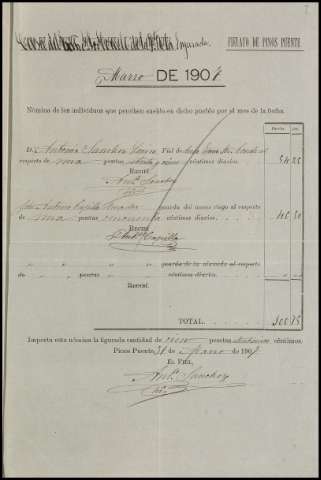 PIELATO DE PINOS PUENTE
Marzo DE 1904
Nómina de los individuos que perciben sueldo en dicho pueblo por el mes de la fecha.
D. Antonio Sanchez Fiel de
respecto de una pesetas setenta y cinco céntimos diarios. 54 25
Recibí
Ant.º Sanchez
Antonio Capilla guarda del nuevo riego al respecto
de una pesetas cincuenta céntimos diarios. 46 50
Recibí
Capilla
" " " " guarda de la vereda al respecto
de " pesetas " céntimos diario.
Recibí
TOTAL. 100 75
Importa esta nómina la figurada cantidad de cien pesetas céntimos.
Pinos Puente 31 de Marzo de 1904
El Fiel,
Ant.º Sanchez